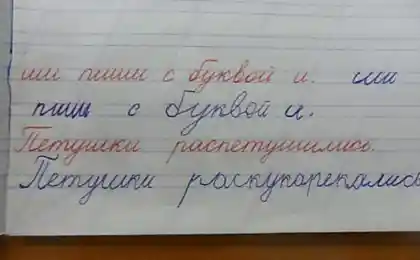 ши пиши с буквой и. ши
пиши с буквой и.
Петушки распетушились.
Петушки раскукорекались